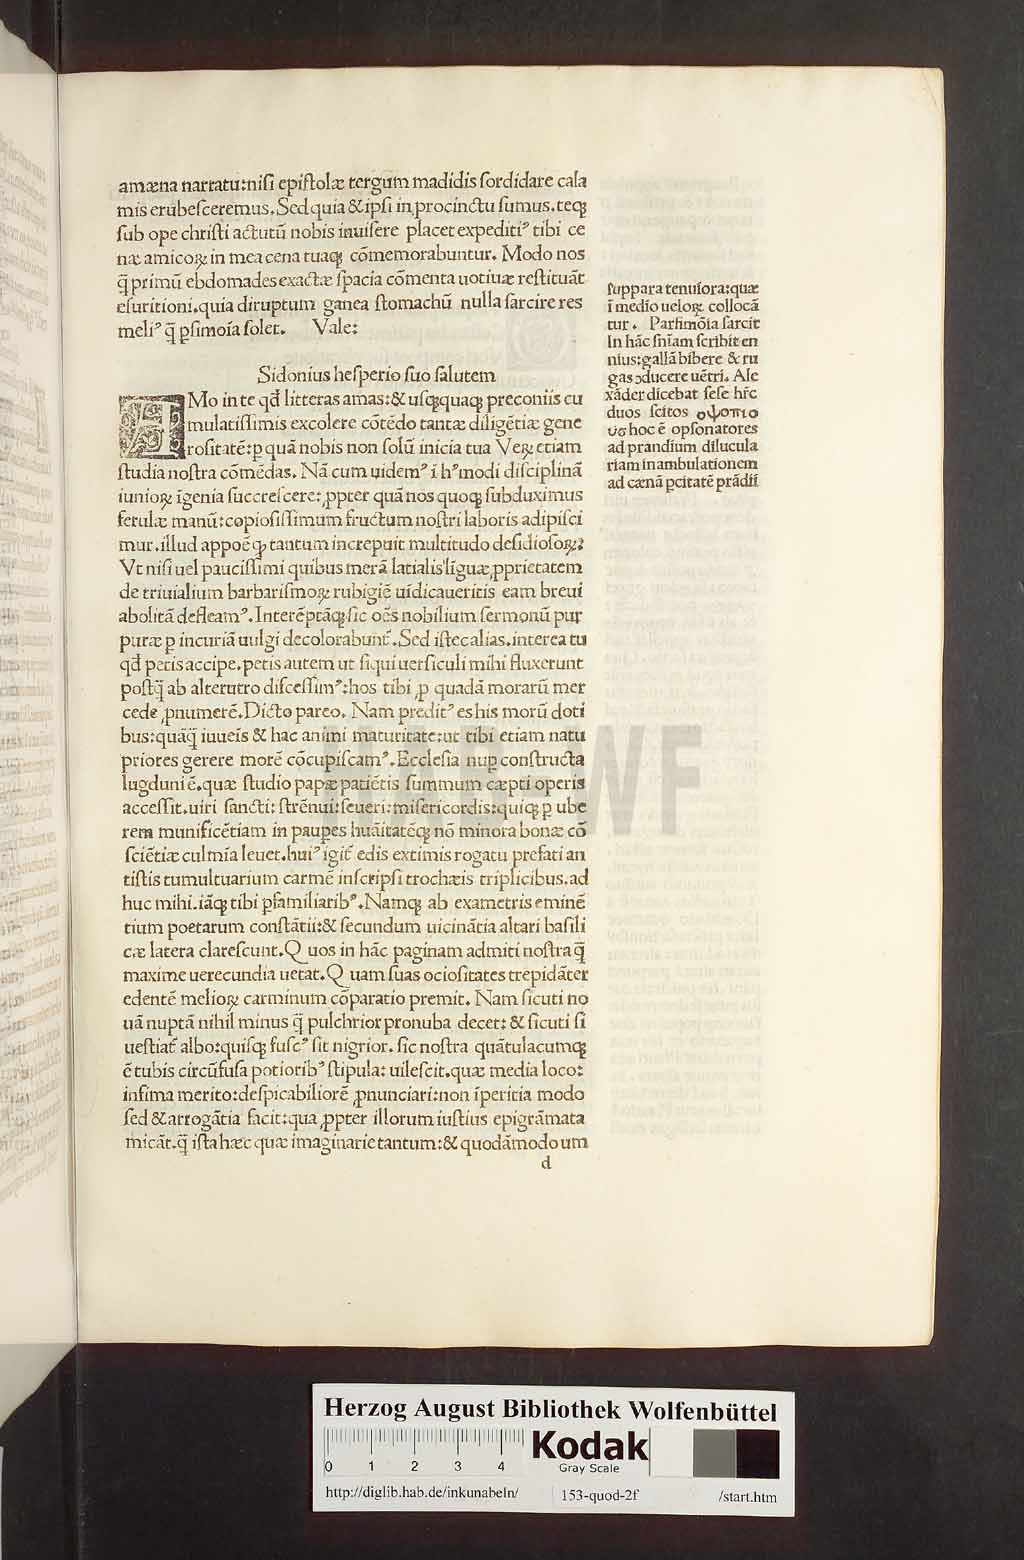 amæna narratu:nisi epistolæ tergum madidis sordidare cala
mis erubesceremus.Sed quia & ipsi in procinctu sumus.teqꝫ
sub ope christi actutū nobis inuisere placet expeditiꝰ tibi ce
næ amicoꝝ in mea cena tuaqꝫ cōmemorabuntur. Modo nos
q̄ primū ebdomades exactæ spacia cōmenta uotiuæ restituāt
esuritioni.quia diruptum ganea stomachū nulla sarcire res
meliꝰ q̄ ꝑsimōia solet. Vale:
Sidonius hesperio suo salutem
AMo in te qđ litteras amas:& usqꝫquaqꝫ preconiis cu
mulatissimis excolere cōtēdo tantæ diligētiæ gene
rositatē:ꝑ quā nobis non solū inicia tua Veꝝ etiam
studia nostra cōmēdas. Nā cum uidemꝰ ī hꝰmodi disciplinā
iunioꝝ īgenia succrescere:ꝓpter quā nos quoqꝫ subduximus
ferulæ manū:copiosissimum fructum nostri laboris adipisci
mur.illud appoē qꝫ tantum increpuit multitudo desidiosoꝝ:
Vt nisi uel paucissimi quibus merā latialis līguæ ꝓprietatem
de triuialium barbarismoꝝ rubigiē uīdicaueritis eam breui
abolitā defleamꝰ.Interēptāqꝫ sic oēs nobilium sermonū pur
puræ ꝑ incuriā uulgi decolorabunt̄.Sed iste calias.interea tu
qđ petis accipe.petis autem ut siqui uersiculi mihi fluxerunt
postq̄ ab alterutro discessimꝰ:hos tibi ꝓ quadā morarū mer
cede ꝓnumerē.Dicto pareo. Nam preditꝰ es his morū doti
bus:quāq̄ iuueis & hac animi maturitate:ut tibi etiam natu
priores gerere morē cōcupiscamꝰ.Ecclesia nuꝑ constructa
lugduni ē.quæ studio papæ patiētis summum cæpti operis
accessit.uiri sancti: strēnui:seueri:misericordis:quiqꝫ ꝑ ube
rem munificētiam in pauꝑes huāitatēqꝫ nō minora bonæ cō
sciētiæ culmīa leuet.huiꝰ igit̄ edis extimis rogatu prefati an
tistis tumultuarium carmē inscripsi trochæis triplicibus.ad
huc mihi.iāqꝫ tibi ꝑfamiliaribꝰ.Namqꝫ ab exametris eminē
tium poetarum constātii:& secundum uicinātia altari basili
cæ latera clarescunt.Quos in hāc paginam admiti nostra q̄
maxime uerecundia uetat.Quam suas ociositates trepidāter
edentē melioꝝ carminum cōparatio premit. Nam sicuti no
uā nuptā nihil minus q̄ pulchrior pronuba decet: & sicuti si
uestiat̄ albo:quisqꝫ fuscꝰ sit nigrior. sic nostra quātulacumqꝫ
ē tubis circūfusa potioribꝰ stipula: uilescit.quæ media loco:
infima merito:despicabiliorē ꝓnunciari:non īperitia modo
sed & arrogātia facit:qua ꝓpter illorum iustius epigrāmata
micāt.q̄ ista hæc quæ imaginarie tantum:& quodāmodo um
d
suppara tenuiora:quæ
ī medio ueloꝝ collocā
tur. Parsimōia sarcit
In hāc sniam scribit en
nius:gallā bibere & ru
gas ↄducere uētri. Ale
xāder dicebat sese hr̄e
duos scitos οψοποιο
υσ hoc ē opsonatores
ad prandium dilucula
riam inambulationem
ad cænā ꝑcitatē prādii
HAB-WF
Herzog August Bibliothek Wolfenbüttel
0 1 2 3 4
Kodak
Gray Scale
http://diglib.hab.de/inkunabeln/ 153-quod-2f /start.htm